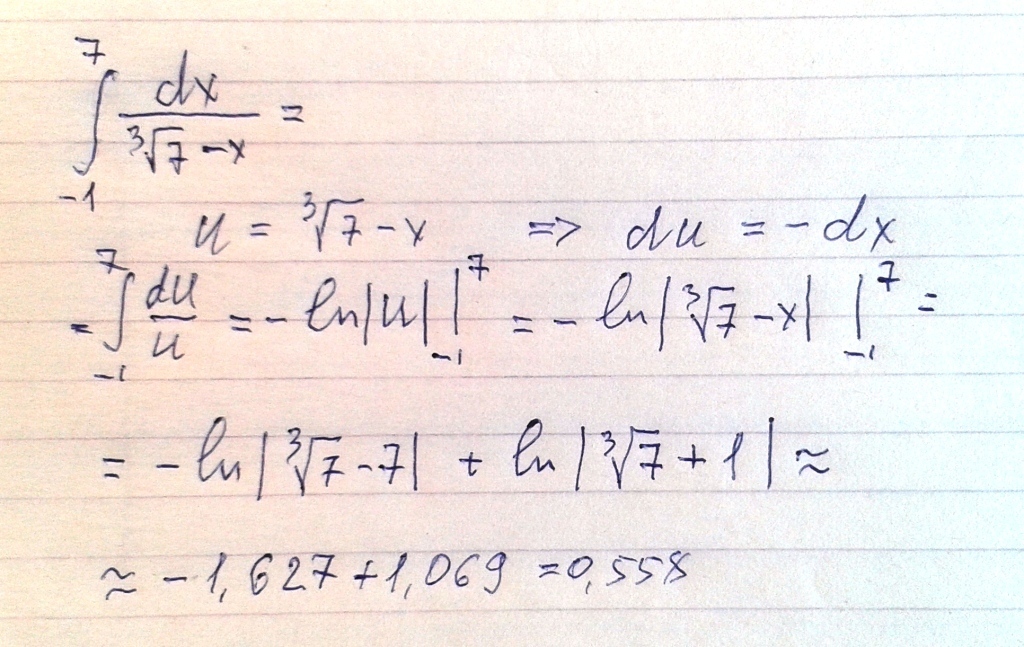 ∫_{-1}^{7} dx / (∛7 - x) =
u = ∛7 - x => du = - dx
= ∫_{-1}^{7} du / u = - ln|u| |_{-1}^{7} = - ln|∛7 - x| |_{-1}^{7} =
= - ln|∛7 - 7| + ln|∛7 + 1| ≈
≈ - 1,627 + 1,069 = 0,558